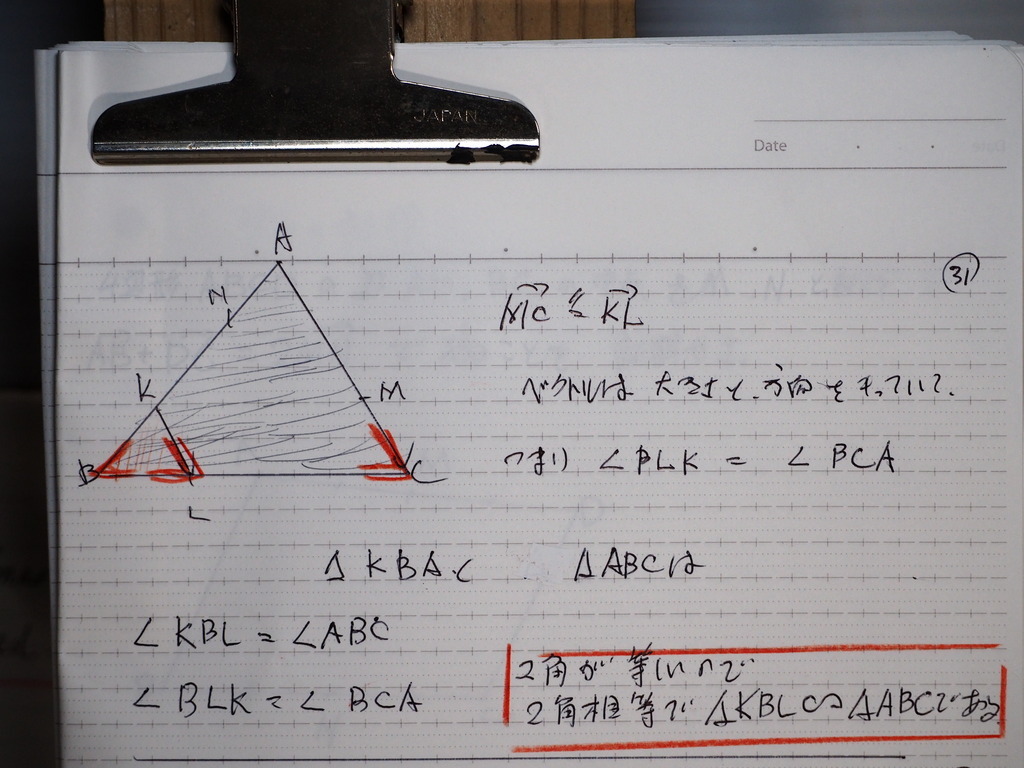 JAPAN
Date
31
A
N
K
M
B
C
L
MC = KL
ベクトルは 大きさと 方向をもっていて、
つまり ∠BLK = ∠BCA
△KBAと △ABCは
∠KBL = ∠ABC
∠BLK = ∠BCA
2角が等しいので
2角相等で △KBL∽△ABCである